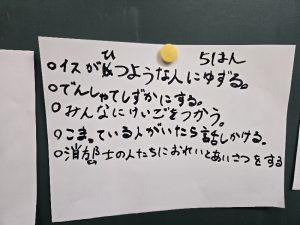 5はん
○イスがひつような人にゆずる。
○でんしゃでしずかにする。
○みんなにけいごをつかう。
○こまっている人がいたら話しかける。
○消防士の人たちにおれいとあいさつをする